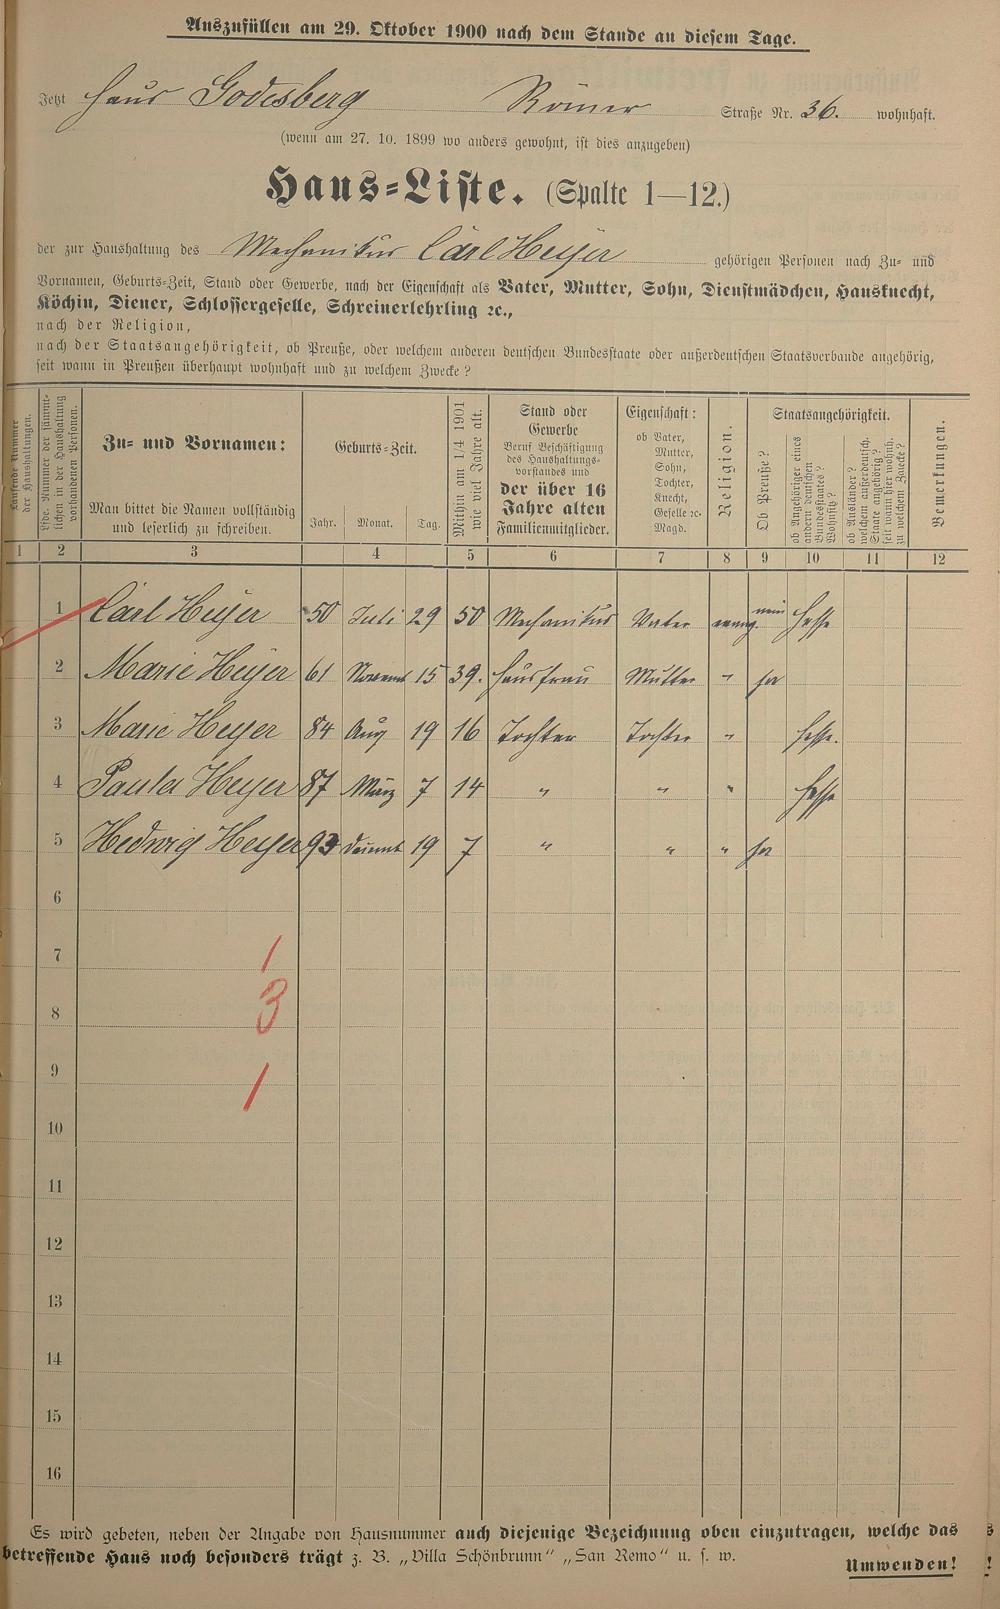 Auszufüllen am 29. Oktober 1900 nach dem Stande an diesem Tage.
Jetzt Haus Godesberg Römer Straße Nr. 36. wohnhaft.
(wenn am 27. 10. 1899 wo anders gewohnt, ist dies anzugeben)
Haus-Liste. (Spalte 1—12.)
der zur Haushaltung des Mechanikus Carl Heyer gehörigen Personen nach Zu- und
Vornamen, Geburts-Zeit, Stand oder Gewerbe, nach der Eigenschaft als Vater, Mutter, Sohn, Dienstmädchen, Hausknecht,
Köchin, Diener, Schlossergeselle, Schreinerlehrling ꝛc.,
nach der Religion,
nach der Staatsangehörigkeit, ob Preuße, oder welchem anderen deutschen Bundesstaate oder außerdeutschen Staatsverbande angehörig,
seit wann in Preußen überhaupt wohnhaft und zu welchem Zwecke?
Laufende Nummer der Haushaltungen.
Lfde. Nummer der sämmtlichen in der Haushaltung vorhandenen Personen.
Zu- und Vornamen:
Man bittet die Namen vollständig
und leserlich zu schreiben.
Geburts-Zeit.
Jahr. Monat. Tag.
Mithin am 1/4 1901
wie viel Jahre alt.
Stand oder
Gewerbe
Beruf Beschäftigung
des Haushaltungs-
vorstandes und
der über 16
Jahre alten
Familienmitglieder.
Eigenschaft:
ob Vater,
Mutter,
Sohn,
Tochter,
Knecht,
Geselle ꝛc.
Magd.
Religion.
Staatsangehörigkeit.
Ob Preuße?
ob Angehöriger eines
andern deutschen
Bundesstaates?
Wohnsitz?
ob Ausländer?
welchem außerdeutsch.
Staate angehörig?
seit wann hier wohnh.
zu welchem Zwecke?
Bemerkungen.
1 2 3 4 5 6 7 8 9 10 11 12
1 Carl Heyer 50 Juli 29 50 Mechanikus Vater evang. nein Hesse
2 Marie Heyer 61 Novemb 15 39. Hausfrau Mutter " ja
3 Marie Heyer 84 Aug 19 16 Tochter Tochter " Hesse.
4 Paula Heyer 87 März 7 14 " " " Hesse
5 Hedwig Heyer 93 19 7 " " " ja
6
7
1
8
3
9
1
10
11
12
13
14
15
16
Es wird gebeten, neben der Angabe von Hausnummer auch diejenige Bezeichnung oben einzutragen, welche das
betreffende Haus noch besonders trägt z. B. „Villa Schönbrunn“ „San Remo“ u. s. w.
Umwenden!